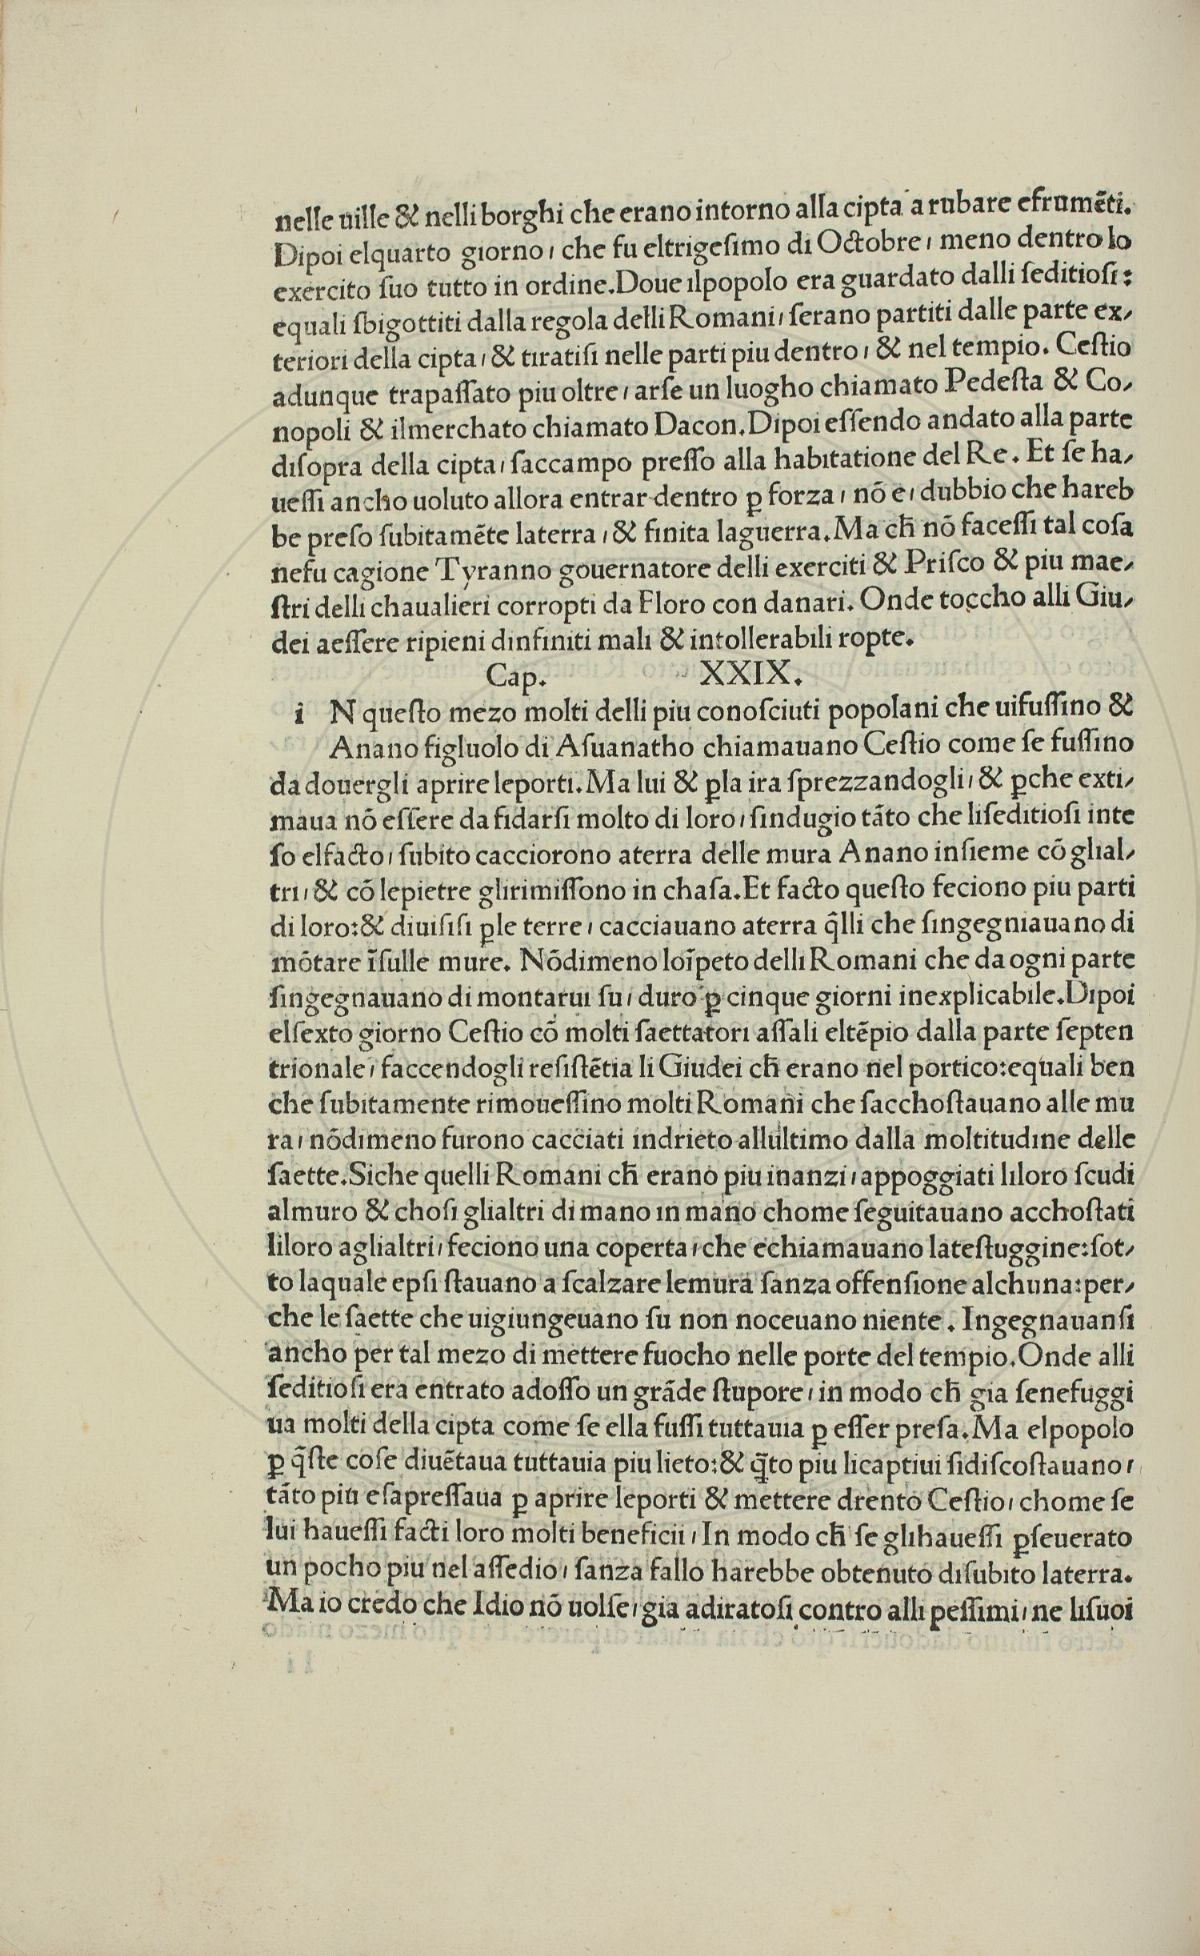 nelle uille & nelli borghi che erano intorno alla cipta a rubare efrumēti.
Dipoi elquarto giorno, che fu eltrigeſimo di Octobre, meno dentro lo
exercito ſuo tutto in ordine. Doue ilpopolo era guardato dalli ſeditioſi:
equali ſbigottiti dalla regola delli Romani, ſerano partiti dalle parte ex/
teriori della cipta, & tiratiſi nelle parti piu dentro, & nel tempio. Ceſtio
adunque trapaſſato piu oltre, arſe un luogho chiamato Pedeſta & Co/
nopoli & ilmerchato chiamato Dacon. Dipoi eſſendo andato alla parte
diſopra della cipta, ſaccampo preſſo alla habitatione del Re. Et ſe ha/
ueſſi ancho uoluto allora entrar dentro ꝑ forza, nō e, dubbio che hareb
be preſo ſubitamēte laterra, & finita laguerra. Ma cħ nō faceſſi tal coſa
nefu cagione Tyranno gouernatore delli exerciti & Priſco & piu mae/
ſtri delli chaualieri corropti da Floro con danari. Onde toccho alli Giu/
dei aeſſere ripieni dinfiniti mali & intollerabili ropte.
Cap. XXIX.
i N queſto mezo molti delli piu conoſciuti popolani che uifuſſino &
Anano figluolo di Aſuanatho chiamauano Ceſtio come ſe fuſſino
da douergli aprire leporti. Ma lui & ꝑla ira ſprezzandogli, & ꝑche exti/
maua nō eſſere da fidarſi molto di loro, ſindugio tāto che liſeditioſi inte
ſo elfacto, ſubito cacciorono aterra delle mura Anano inſieme cō glial/
tri, & cō lepietre glirimiſſono in chaſa. Et facto queſto feciono piu parti
di loro: & diuiſiſi ꝑle terre, cacciauano aterra q̄lli che ſingegniauano di
mōtare īſulle mure. Nōdimeno loīpeto delli Romani che da ogni parte
ſingegnauano di montarui ſu, duro ꝑ cinque giorni inexplicabile. Dipoi
elſexto giorno Ceſtio cō molti ſaettatori aſſali eltēpio dalla parte ſepten
trionale, faccendogli reſiſtētia li Giudei cħ erano nel portico: equali ben
che ſubitamente rimoueſſino molti Romani che ſacchoſtauano alle mu
ra, nōdimeno furono cacciati indrieto allultimo dalla moltitudine delle
ſaette. Siche quelli Romani cħ erano piu inanzi, appoggiati liloro ſcudi
almuro & choſi glialtri di mano in mano chome ſeguitauano acchoſtati
liloro aglialtri, feciono una coperta, che echiamauano lateſtuggine: ſot/
to laquale epſi ſtauano a ſcalzare lemura ſanza offenſione alchuna: per/
che le ſaette che uigiungeuano ſu non noceuano niente. Ingegnauanſi
ancho per tal mezo di mettere fuocho nelle porte del tempio. Onde alli
ſeditioſi era entrato adoſſo un grāde ſtupore, in modo cħ gia ſenefuggi
ua molti della cipta come ſe ella fuſſi tuttauia ꝑ eſſer preſa. Ma elpopolo
ꝑ q̄ſte coſe diuētaua tuttauia piu lieto: & q̄to piu licaptiui ſidiſcoſtauano,
tāto piu eſapreſſaua ꝑ aprire leporti & mettere drento Ceſtio, chome ſe
lui haueſſi facti loro molti beneficii, In modo cħ ſe glihaueſſi ꝑſeuerato
un pocho piu nel aſſedio, ſanza fallo harebbe obtenuto diſubito laterra.
Ma io credo che Idio nō uolſe, gia adiratoſi contro alli peſſimi, ne liſuoi